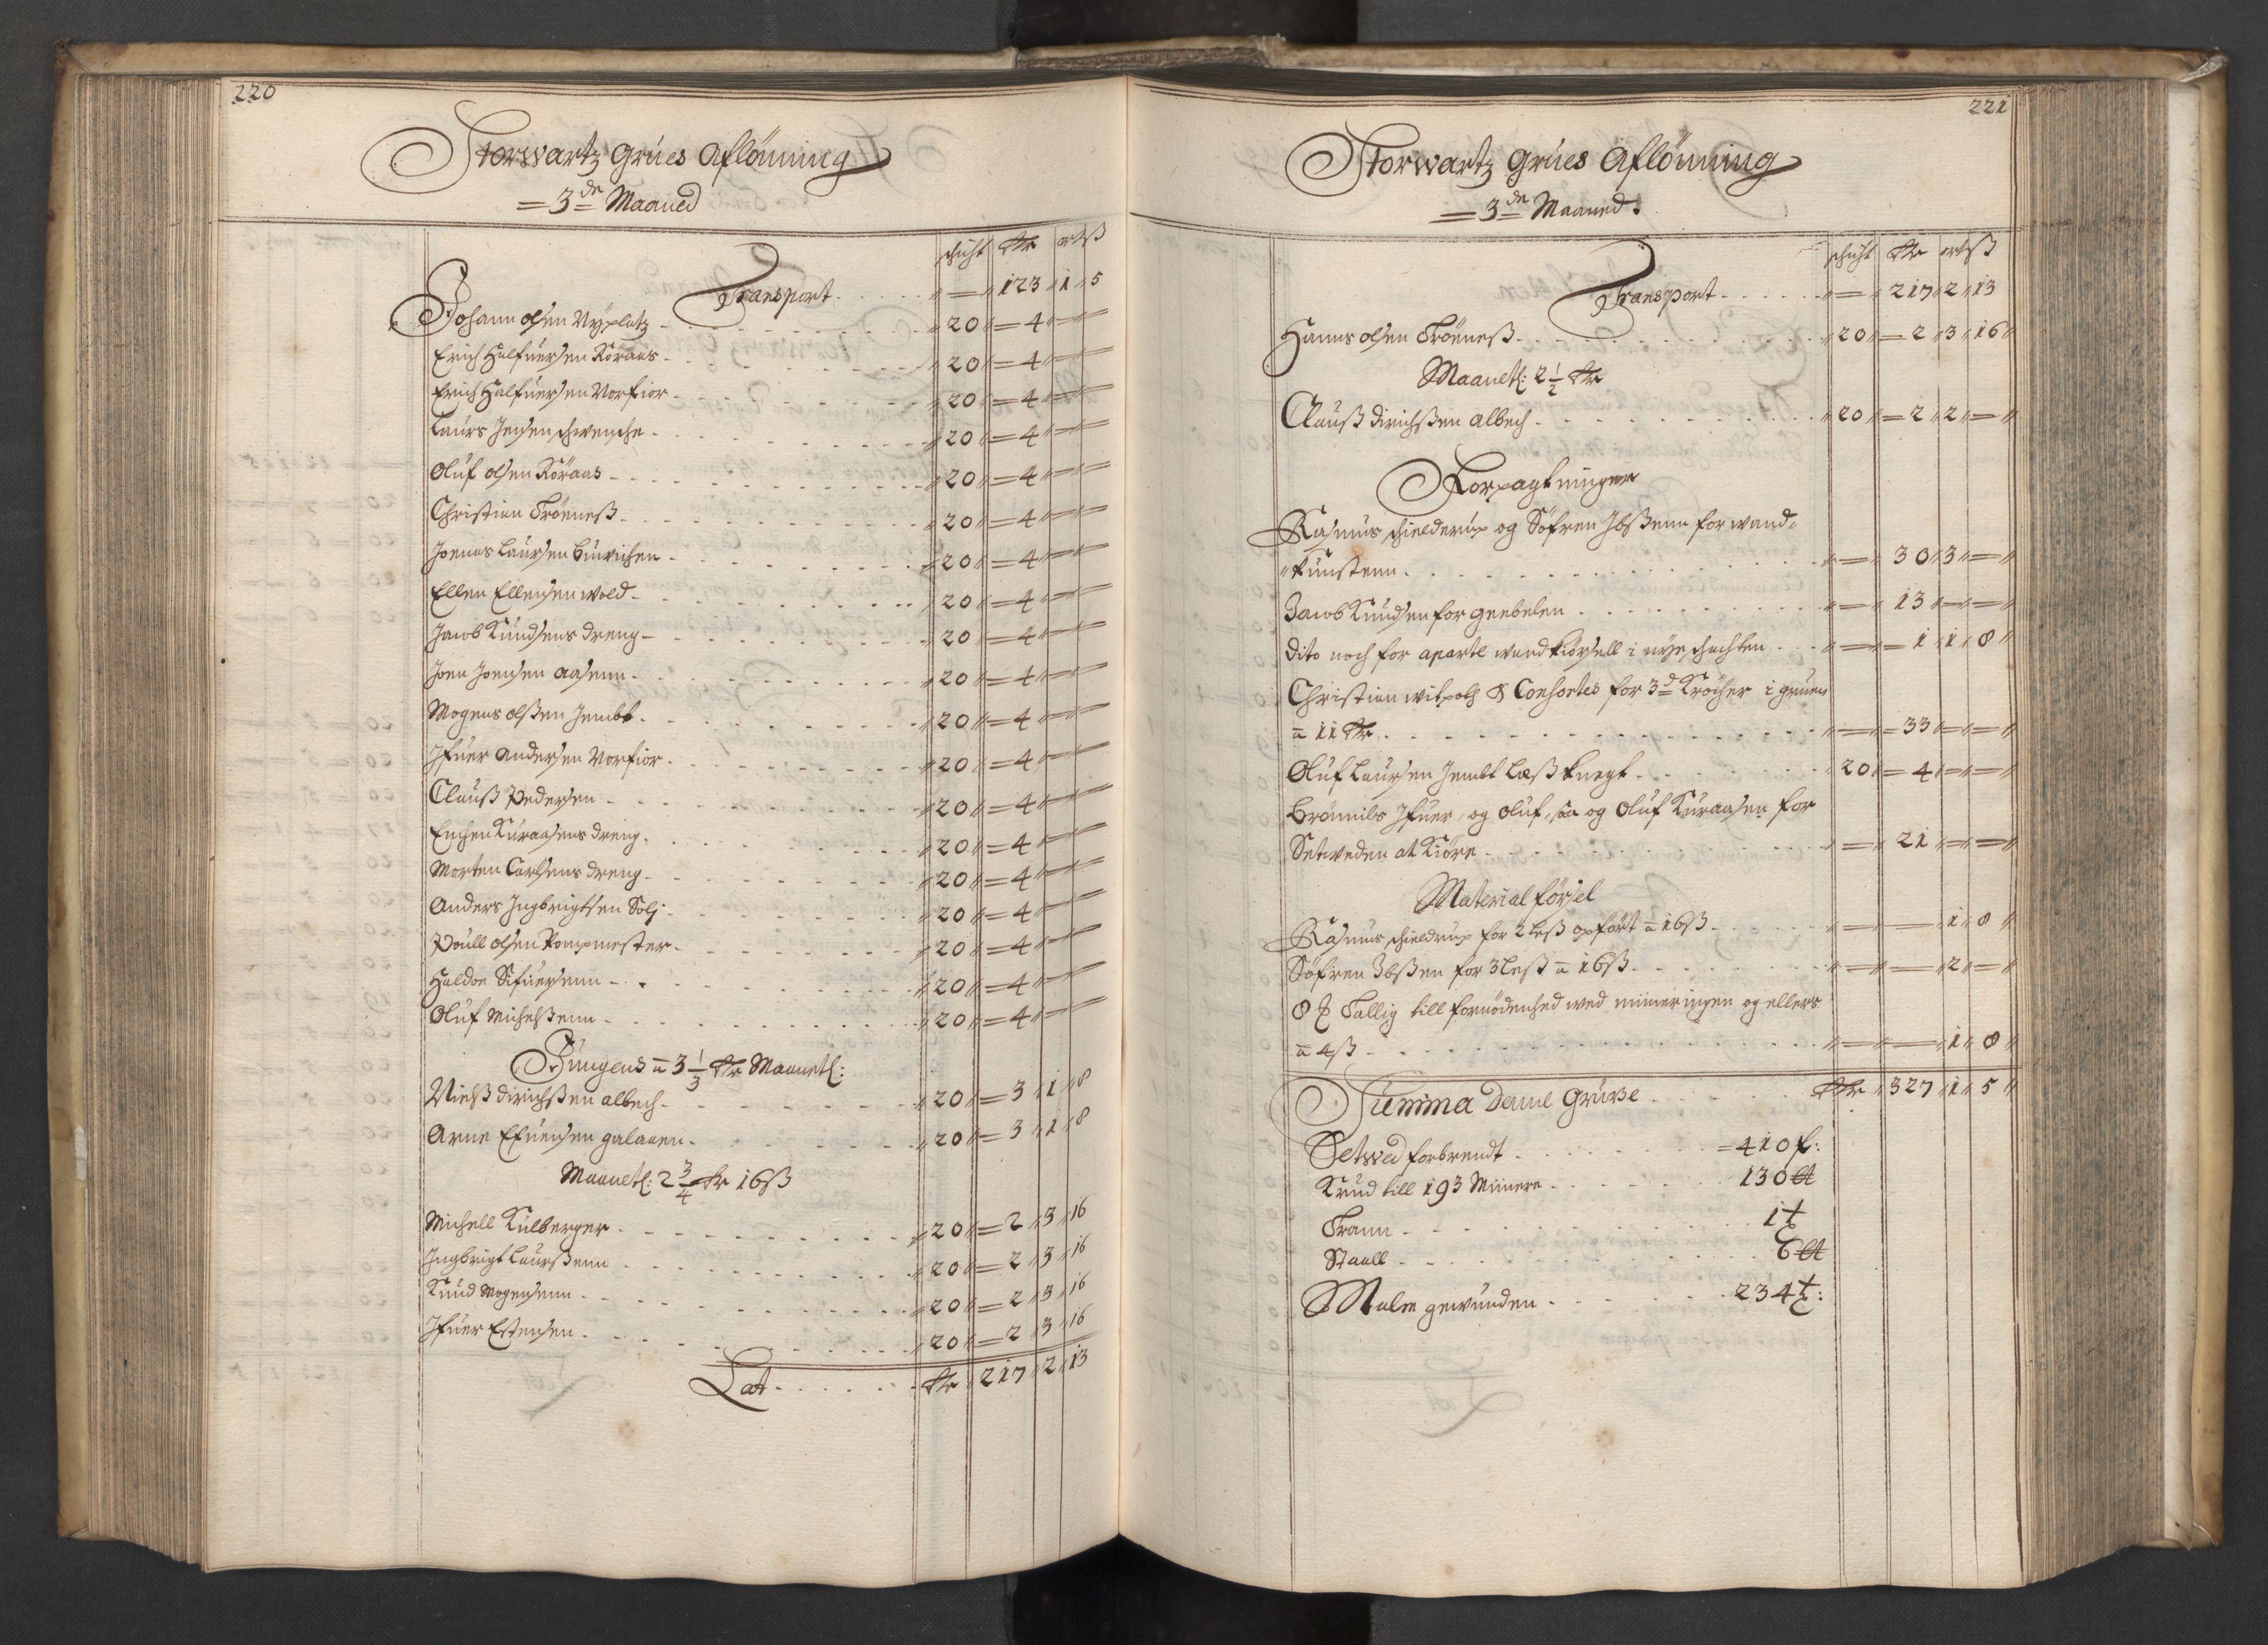 220
Storwartz Grúes Aflönning
= 3de Maaned
schicht Rdr ort ß
Transport . . . . . „ = „ 123 „ 1 „ 5
Johann olsen Nÿplatz - „ 20 „ = 4 „ = „ =
Erich Halfuersen Röraas - „ 20 „ = 4 „ = „ =
Erich Halfuersen Morfior - „ 20 „ = 4 „ = „ =
Laurs Jensen schwensche - „ 20 „ = 4 „ = „ =
Oluf olsen Röraas - „ 20 „ = 4 „ = „ =
Christian Tröeneß - „ 20 „ = 4 „ = „ =
Joenas Laursen - „ 20 „ = 4 „ = „ =
Ellen Ellensen wold - „ 20 „ = 4 „ = „ =
Jacob Knudsens dreng - „ 20 „ = 4 „ = „ =
Joen Joensen Aasenn - „ 20 „ = 4 „ = „ =
Mogens olßen Jembt - „ 20 „ = 4 „ = „ =
Ifuer Andersen Morfior - „ 20 „ = 4 „ = „ =
Clauß Pedersen - „ 20 „ = 4 „ = „ =
Kúraasens dreng - „ 20 „ = 4 „ = „ =
Morten Carlsens dreng - „ 20 „ = 4 „ = „ =
Anders Ingbrigtsen Solj - „ 20 „ = 4 „ = „ =
Poúll olsen Pompmester - „ 20 „ = 4 „ = „ =
Haldoe Sifuersenn - „ 20 „ = 4 „ = „ =
Oluf Michelßenn - „ 20 „ = 4 „ = „ =
Jungens a 3 1/3 Rdr Maanetl:
Nielß dirichßen albech - „ 20 „ = 3 „ 1 „ 8
Arne Efuensen galaaen - „ 20 „ = 3 „ 1 „ 8
Maanetl: 2 3/4 Rdr 16 ß
Michell Kúlberger - „ 20 „ = 2 „ 3 „ 16
Ingbrigt Laurßenn „ 20 „ = 2 „ 3 „ 16
Knud Mogensenn - „ 20 „ = 2 „ 3 „ 16
Ifuer Estensen - „ 20 „ = 2 „ 3 „ 16
Lat - - - - Rdr „ 217 „ 2 „ 13
221
Storwartz Grúes Aflönning
= 3de Maaned.
schicht Rdr ort ß
Transport - - - „ = „ 217 „ 2 „ 13
Hanns olsen Tröeneß - „ 20 „ = 2 „ 3 „ 16 „
Maanetl: 2 1/2 Rdr
Clauß dirichßen albech - „ 20 „ = 2 „ 2 „ = „
Forpagtninger
Rasmus schielderup og Söfren Ibßenn for wand=
„kunstenn . „ = „ 30 „ 3 „ = „
Jacob Knudsen for geebelen „ = „ 13 „ = „ = „
dito noch for aparte wandkiörsell i nÿe schachten - „ = „ = 1 „ 1 „ 8 „
Christian witpoth & Consortes for 3de Kröcher i gruen
a 11 Rdr „ = „ = 33 „ = „ = „
Oluf Laursen Jembt Læß knegt - „ 20 „ = 4 „ = „ = „
Brömils Ifuer, og Oluf, saa og Oluf Kúraasen for
Setweden at Kiöre - „ = „ 21 „ = „ = „
Material försel
Rasmus schieldrup for 2 leß opfört a 16 ß - „ = „ = „ 1 „ 8 „
Söfren Ibßen for 3 leß a 16 ß - „ = „ = „ 2 „ = „
8 ℔ Tallig till fornödenhed wed mineringen og ellers
a 4 ß - „ = „ = „ 1 „ 8 „
Summa denne Grúbe - Rdr „ 327 „ 1 „ 5 „
Setwed forbrendt - = 410 f:
Krud till 193 Minere - 130 ℔
Trann - 1 t
Staall - 6 ℔
Malm gewúnden - 234 t: